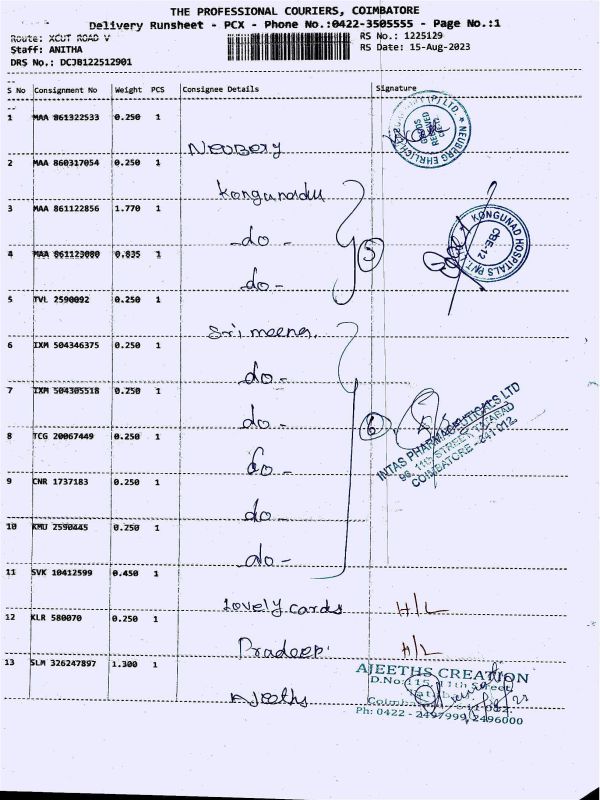 THE PROFESSIONAL COURIERS, COIMBATORE
Delivery Runsheet - PCX - Phone No.:0422-3505555 - Page No.:1
Route: XCUT ROAD V
RS No.: 1225129
Staff: ANITHA
RS Date: 15-Aug-2023
DRS No.: DCJB122512901
S No Consignment No Weight PCS Consignee Details Signature
1 MAA 861322533 0.250 1
Neuberg
NEUBERG EHRLICH
GOODS RECEIVED
2 MAA 860317054 0.250 1
Kongunadu
3 MAA 861122856 1.770 1
-do-
KONGUNAD HOSPITALS PVT.
CBE-12
4 MAA 861123080 0.835 1
do-
5
5 TVL 2590092 0.250 1
Sri meena.
6 IXM 504346375 0.250 1
do-
7 IXM 504305518 0.250 1
do-
6
INTAS PHARMACEUTICALS LTD
98, 11th STREET, TATABAD
COIMBATORE - 641 012.
8 TCG 20067449 0.250 1
do-
9 CNR 1737183 0.250 1
do-
10 KMU 2590445 0.250 1
do-
11 SVK 10412599 0.450 1
Lovely cards H/L
12 KLR 580070 0.250 1
Pradeep. H/L
13 SLM 326247897 1.300 1
Ajeeths
AJEETHS CREATION
D.No:115, 11th Street,
Ph: 0422 - 2497999, 2496000